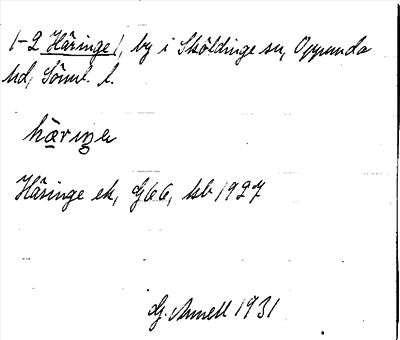 1-2 Häringe, by i Sköldinge sn, Oppunda
hd, Söml. l.
häriŋe
Häringe ek, G66, skb 1927
G. Annell 1931